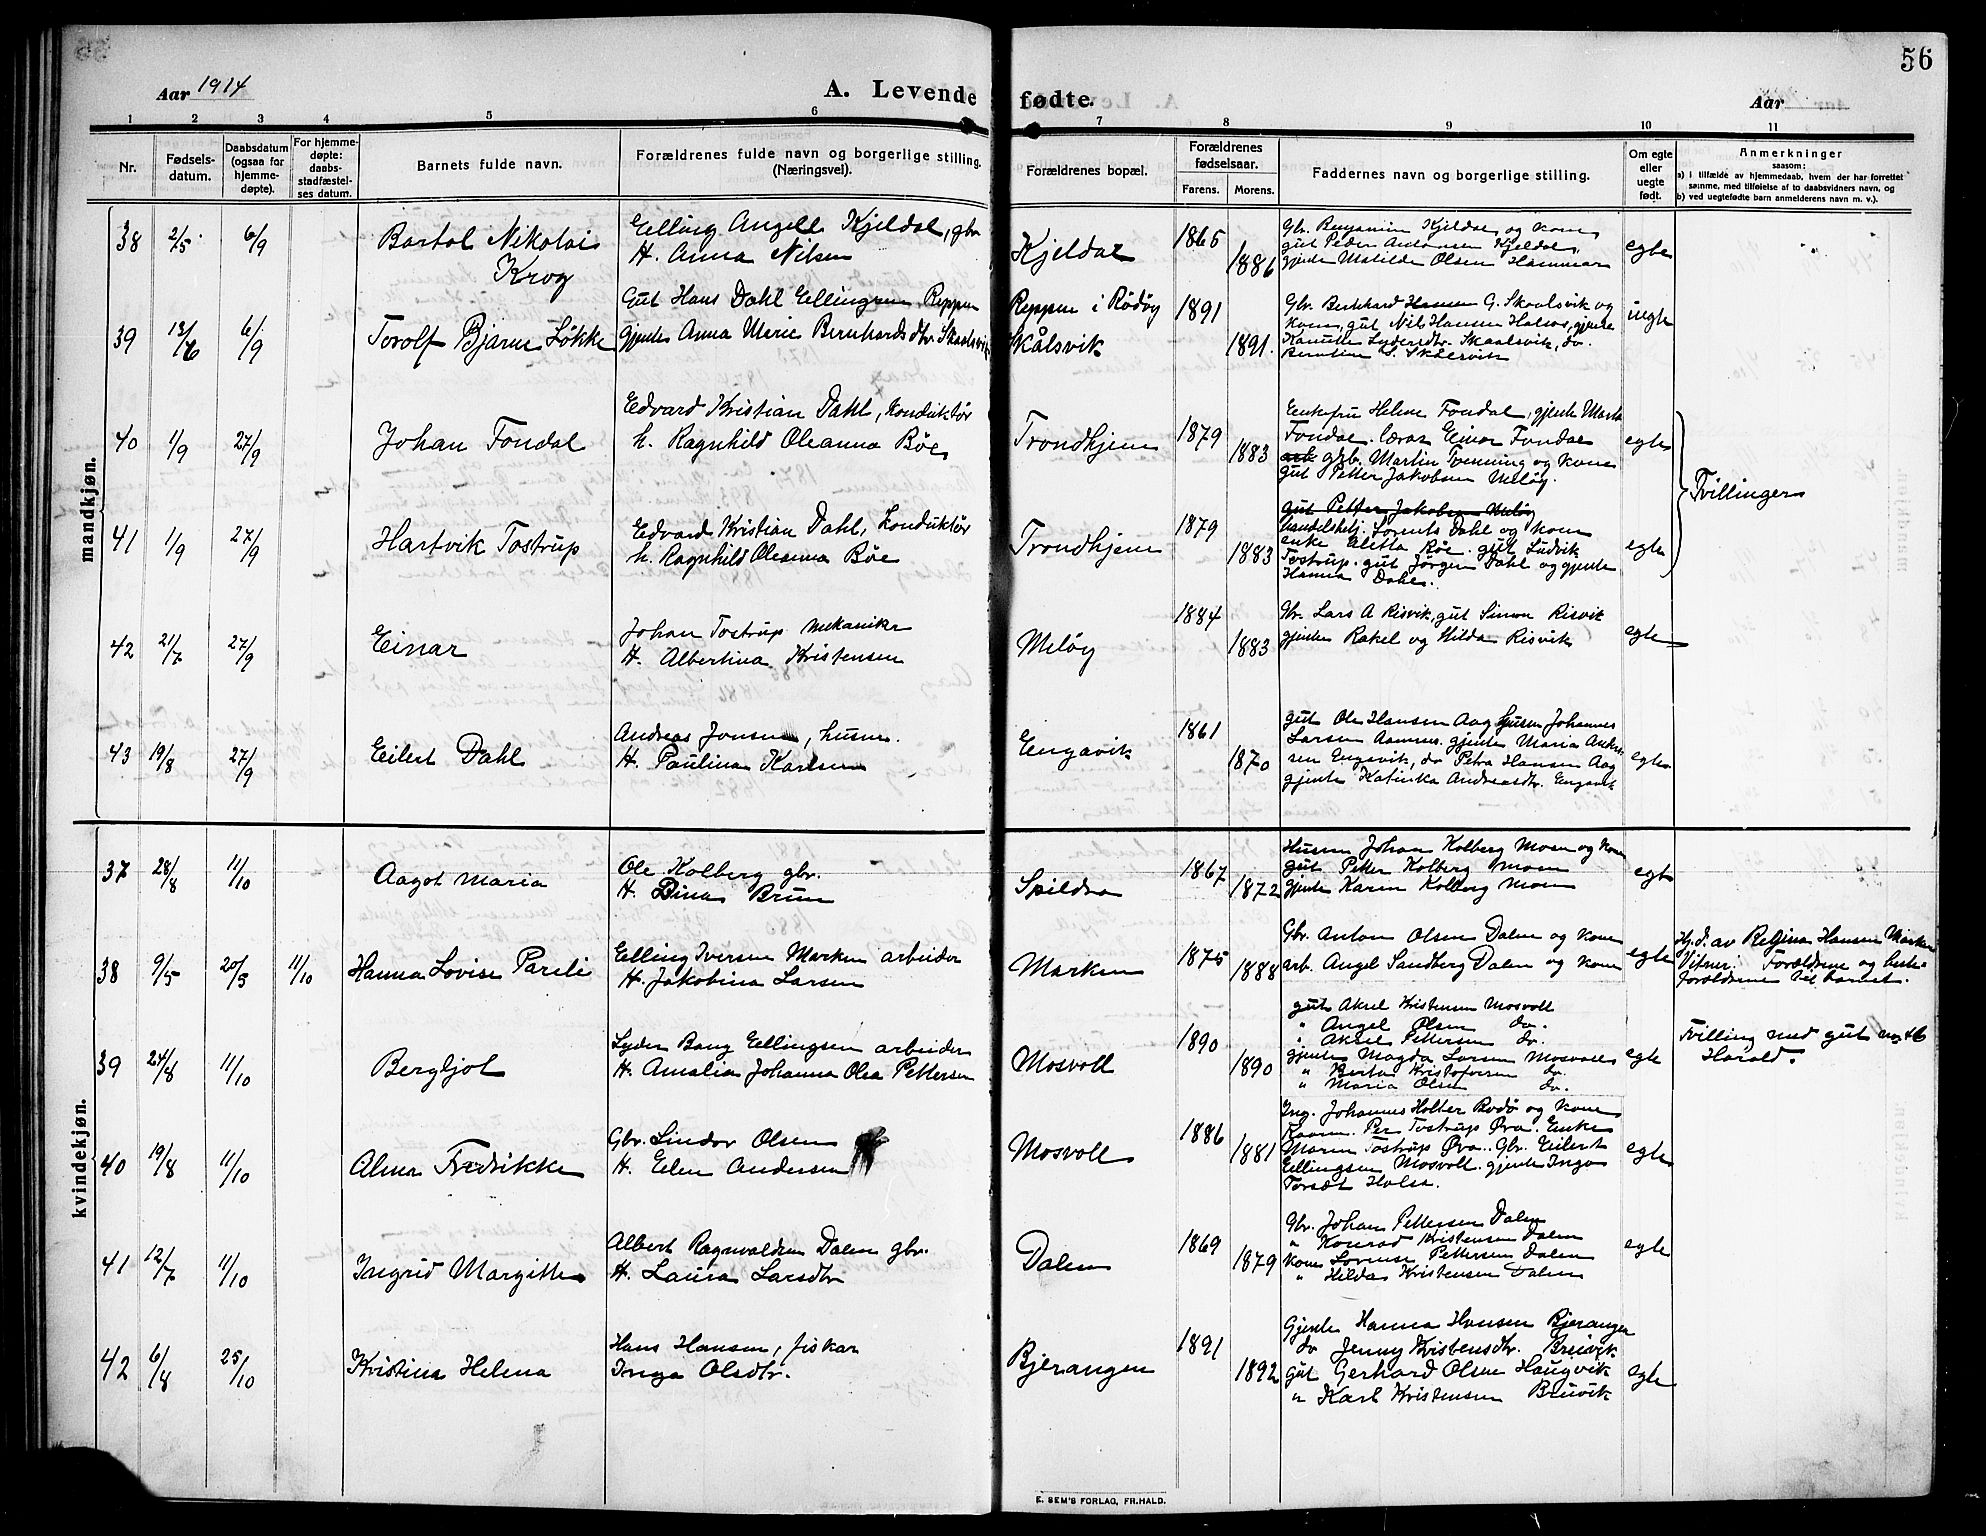 56
Aar 1914
A. Levende fødte.
Aar
1 2 3 4 5 6 7 8 9 10 11
Nr.
Fødsels-
datum.
Daabsdatum
(ogsaa for
hjemme-
døpte).
For hjemme-
døpte:
daabs-
stadfæstel-
ses datum.
Barnets fulde navn.
Forældrenes fulde navn og borgerlige stilling.
(Næringsvei).
Forældrenes bopæl.
Forældrenes
fødselsaar.
Farens. Morens.
Faddernes navn og borgerlige stilling.
Om egte
eller
uegte
født.
Anmerkninger
saasom:
a) i tilfælde av hjemmedaab, hvem der har forrettet
samme, med tilføielse af to daabsvidners navn, og
b) ved uegtefødte barn anmelderens navn m. v.).
mandkjøn.
38 2/5 6/9 Bartol Nikolai
Krog
Elling Angell Kjeldal, gbr
H. Anna Nilsen
Kjeldal
1865
1886
Gbr. Benjamin Kjeldal og kone
gut Peder Antonsen Kjeldal,
gjente Matilde Olsen Hammar
egte
39 13/6 6/9 Torolf Bjarne Løkke
Gut Hans Dahl Ellingsen Reppen
gjente Anna Marie Bernhardsdtr Skaalsvik
Reppen i Rødøy
Skålsvik
1891
1891.
Gbr. Bernhard Hansen G. Skaalsvik og
kone, gut Nils Hansen Halsos, gjente
Kanutte Lydersdtr. Skaalsvik, do.
Berntine S. Skålsvik
uegte
40 1/9 27/9 Johan Fondal
Edvard Kristian Dahl, Konduktør
h. Ragnhild Oleanna Bøe
Trondhjem
1879
1883
Enkefru Helene Fondal, gjente Marta
Fondal. lærer Einar Fondal
gbr. Martin Tvenning og kone
gut Petter Jakobsen Meløy.
egte
Tvillinger
41 1/9 27/9 Hartvik Tostrup
Edvard Kristian Dahl, Konduktør
h. Ragnhild Oleanna Bøe
Trondhjem
1879
1883
gut Petter Jakobsen Meløy
handelsbetj. Lorents Dahl og kone
enke Aletta Røe. gut Ludvik
Tostrup. gut Jørgen Dahl og gjente
Hanna Dahl.
egte
42 21/7 27/9 Einar
Johan Tostrup mekaniker
H. Albertina Kristensen
Meløy
1884
1883
Gbr. Lars A Risvik, gut Simon Risvik
gjente Rakel og Hilda Risvik
egte
43 19/8 27/9 Eilert Dahl
Andreas Jonsen, husm.
H. Paulina Karlsen
Engavik
1861
1870
gut Ole Hansen Aag husm Johannes
Larsen Aamnes. gjente Maria Andrea-
sen Engavik, do Petra Hansen Aag
gjente Katinka Andreasdtr. Engavik
egte
kvindekjøn.
37 28/8 11/10 Aagot Maria
Ole Kolberg gbr.
H. Dina Brun
Spildra
1867
1872
Husm Johan Kolberg Moen og kone
gut Petter Kolberg Moen
gjente Karen Kolberg Moen
egte
38 9/5 20/5 11/10 Hanna Lovise Parili
Elling Iversen Marken arbeider
H. Jakobina Larsen
Marken
1875
1888
Gbr. Anton Olsen Dalen og kone
arb. Angel Sandberg Dalen og kone
egte
Hj.d. av Regina Hansen Marken
Vitner: Forældrene og beste-
forældrene til barnet.
39 24/8 11/10 Bergljot
Lyder Bang Ellingsen arbeider
H. Amalia Johanna Olea Pettersen
Mosvoll
1890
1890
gut Aksel Kristensen Mosvoll
" Angel Olsen do.
" Aksel Pettersen do.
gjente Magda Larsen Mosvoll
" Berta Kristofersen do.
" Maria Olsen do.
egte
Tvilling med gut no 46
Harald.
40 19/8 11/10 Alma Fredrikke
Gbr. Lindor Olsen
H. Elen Andersen
Mosvoll
1886
1881
Ing. Johannes Holter Bodø og kone
Kaaren. Per Tostrup Øra. Enke
Maren Tostrup Øra. Gbr. Eilert
Ellingsen Mosvoll. gjente Inga
Torsdt Halsa.
egte
41 12/7 11/10 Ingrid Margitte
Albert Ragnvaldsen Dalen gbr.
H. Laura Larsdtr
Dalen
1869
1879
Gbr. Johan Pettersen Dalen
" Konrad Kristensen Dalen
kone Lovense Pettersen Dalen
" Hilda Kristensen Dalen
egte
42 6/8 25/10 Kristine Helena
Hans Hansen, fisker
Inga Olsdtr.
Bjerangen
1891
1892
Gjente Hanna Hansen Bjerangen
do Jenny Kristensdtr. Breivik
gut Gerhard Olsen Haugvik
" Karl Kristensen Breivik
egte
E. SEM'S FORLAG, FR.HALD.